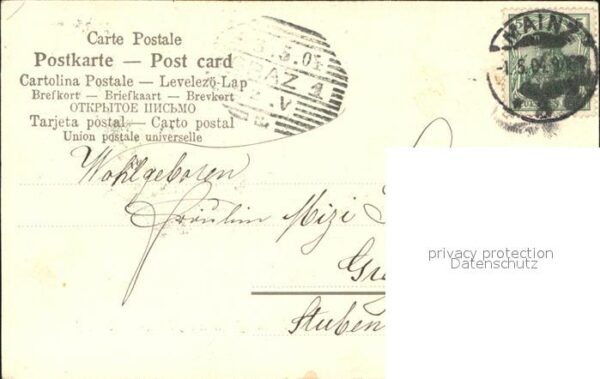 Carte Postale
Postkarte — Post card
Cartolina Postale — Levelező-Lap
Brefkort — Briefkaart — Brevkort
ОТКРЫТОЕ ПИСЬМО
Tarjeta postal — Carto postal
Union postale universelle
5.04
GRAZ 1
V
MAINZ
5
Wohlgeboren
Fräulein Mizi
Gra
Stuben
privacy protection
Datenschutz